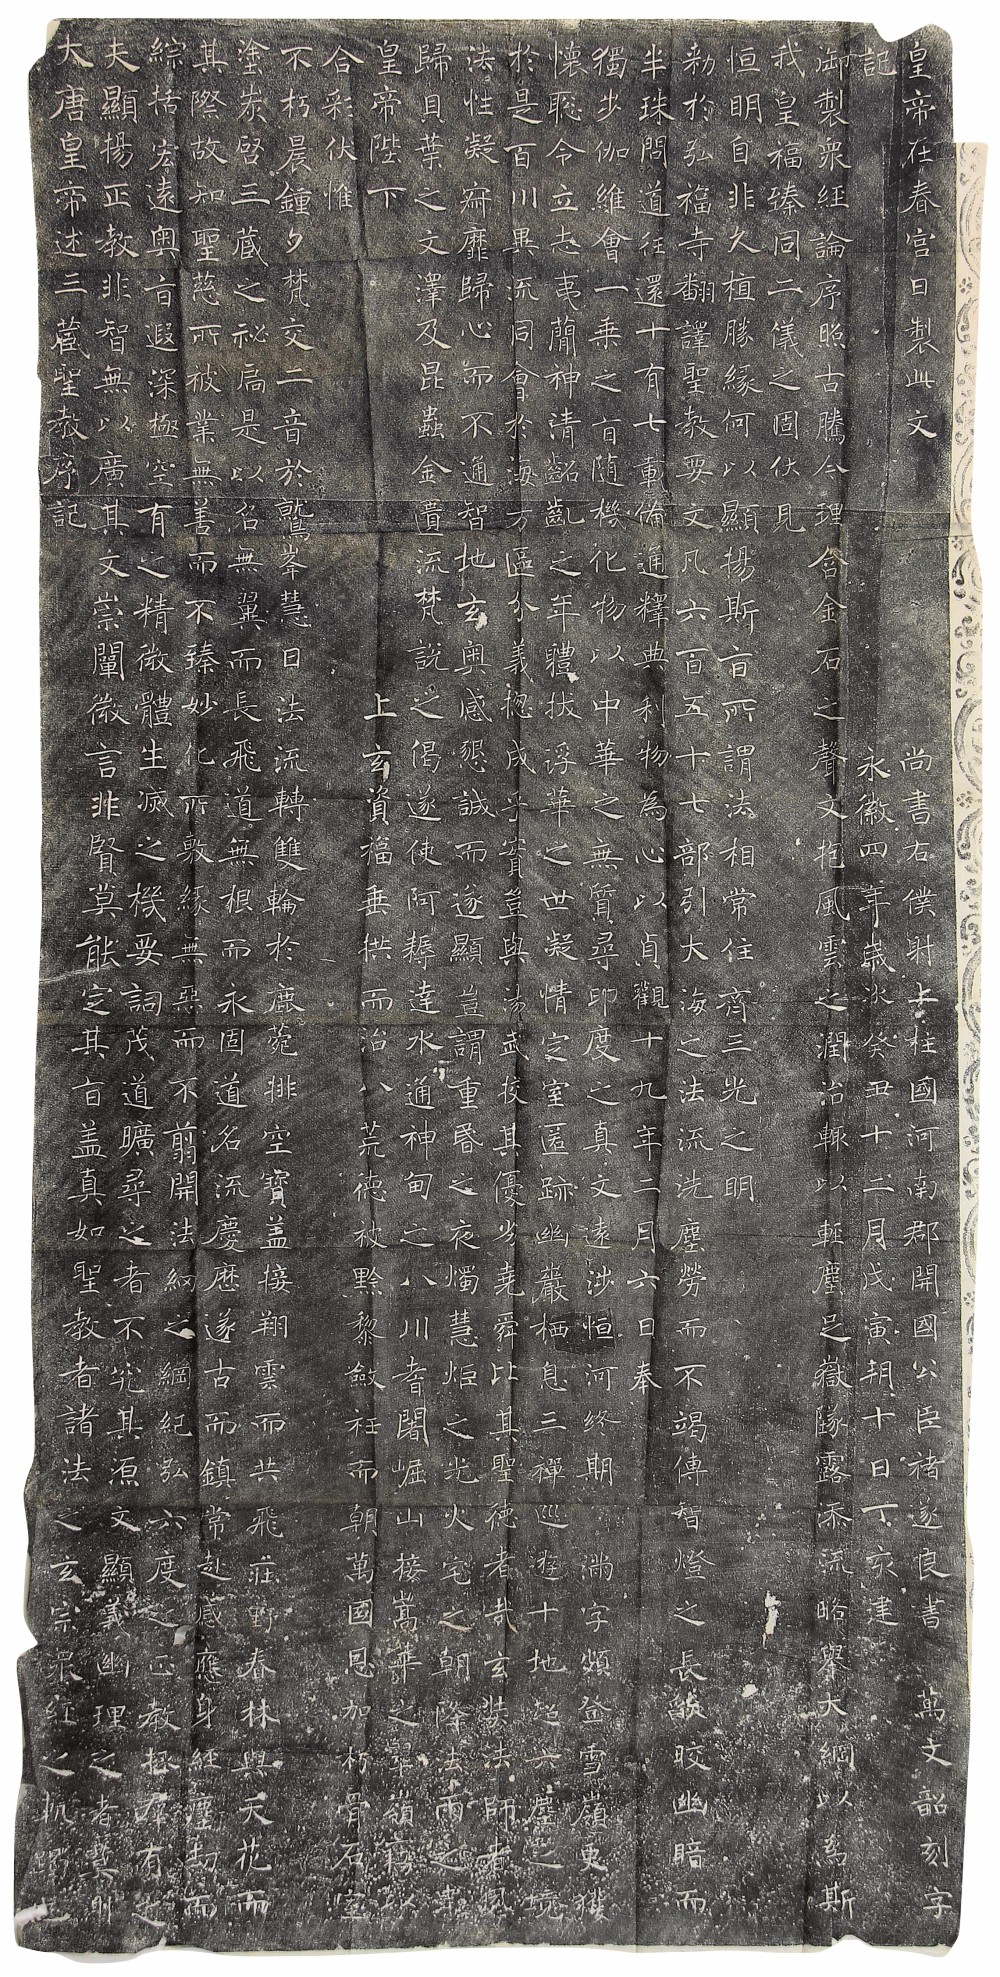 大唐皇帝述三藏聖教序記
夫顯揚正教非智無以廣其文崇闡微言非賢莫能定其旨盖真如聖教者諸法之玄宗眾經之軌躅也
綜括宏遠奧旨遐深極空有之精微體生滅之機要詞茂道曠尋之者不究其源文顯義幽理之者莫測
其際故知聖慈所被業無善而不臻妙化所敷緣無惡而不翦開法網之綱紀弘六度之正教拯群有之
塗炭啓三藏之祕扃是以名無翼而長飛道無根而永固道名流慶歷遂古而鎮常赴感應身經塵劫而
不朽晨鍾夕梵交二音於鷲峯慧日法流轉雙輪於鹿菀排空寶盖接翔雲而共飛莊野春林與天花而
合彩伏惟
皇帝陛下 上玄資福垂拱而治八荒德被黔黎斂衽而朝萬國恩加朽骨石室
歸貝葉之文澤及昆蟲金匱流梵說之偈遂使阿耨達水通神甸之八川耆闍崛山接嵩華之翠嶺竊以
法性凝寂靡歸心而不通智地玄奧感懇誠而遂顯豈謂重昏之夜燭慧炬之光火宅之朝降法雨之澤
於是百川異流同會於海万區分義揔成乎實豈與湯武挍其優劣堯舜比其聖德者哉玄奘法師者夙
懷聡令立志夷簡神清齠齔之年體拔浮華之世凝情定室匿跡幽巖栖息三禪巡遊十地超六塵之境
獨步伽維會一乘之旨隨機化物以中華之無質尋印度之真文遠涉恒河終期滿字頻登雪嶺更獲
半珠問道往還十有七載備通釋典利物為心以貞觀十九年二月六日奉
勑於弘福寺翻譯聖教要文凡六百五十七部引大海之法流洗塵勞而不竭傳智燈之長燄皎幽暗而
恒明自非久植勝緣何以顯揚斯旨所謂法相常住齊三光之明
我皇福臻同二儀之固伏見
御製眾經論序照古騰今理含金石之聲文抱風雲之潤治輒以輕塵足嶽墜露添流略舉大綱以為斯
記 永徽四年歲次癸丑十二月戊寅朔十日丁亥建
皇帝在春宮日製此文 尚書右僕射上柱國河南郡開國公臣褚遂良書 萬文韶刻字